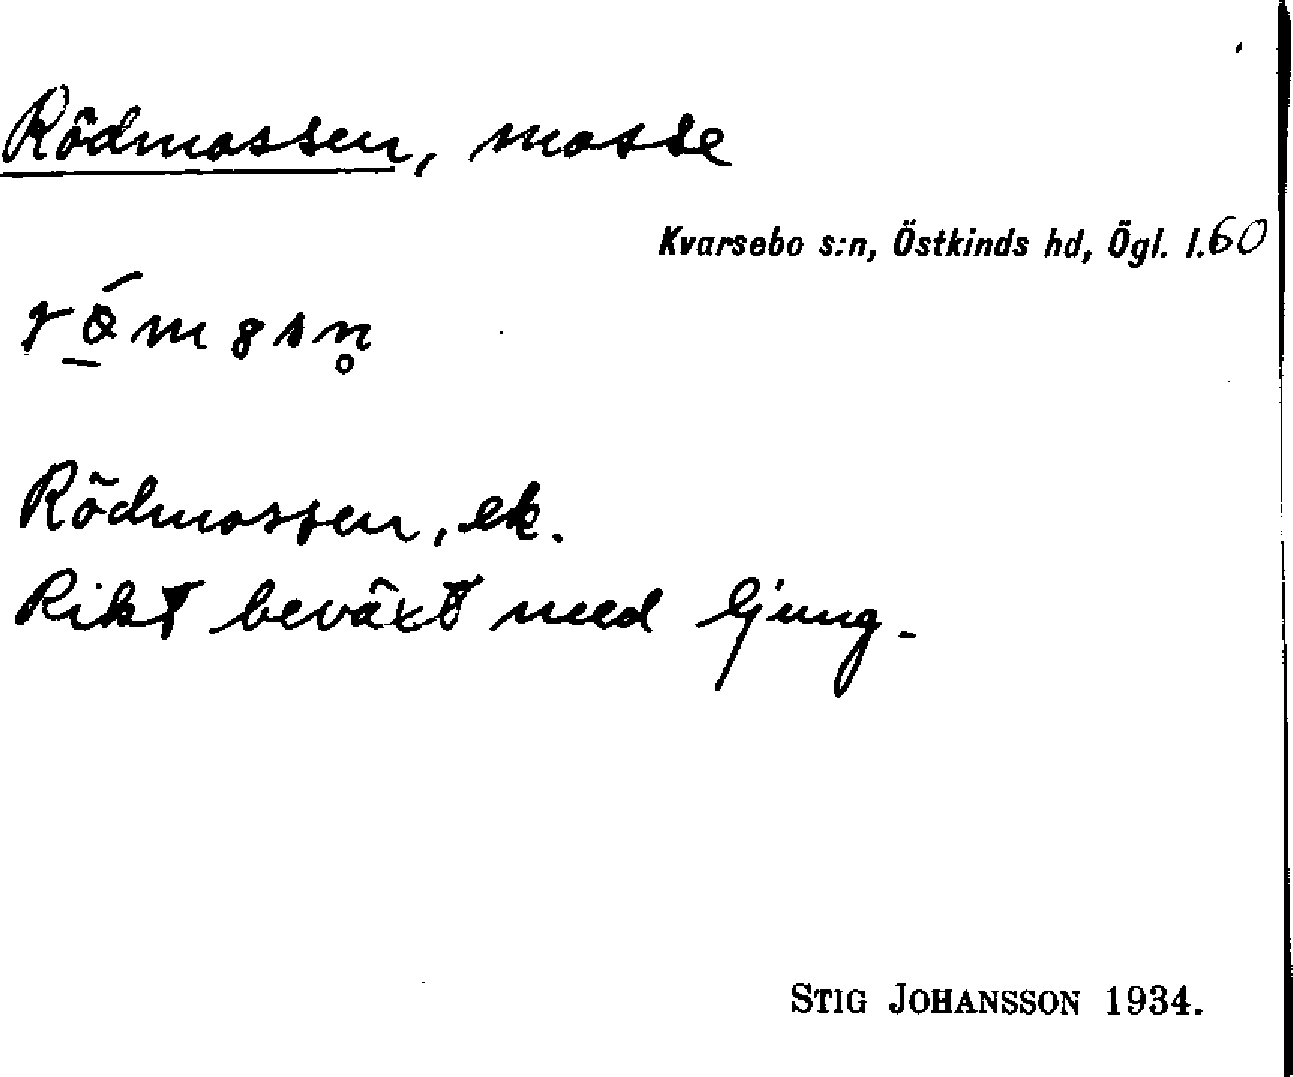 Rödmossen, mosse
Kvarsebo s:n, Östkinds hd, Ögl. l. 60
Rödmossen, ek.
Rikt beväxt med ljung.
STIG JOHANSSON 1934.